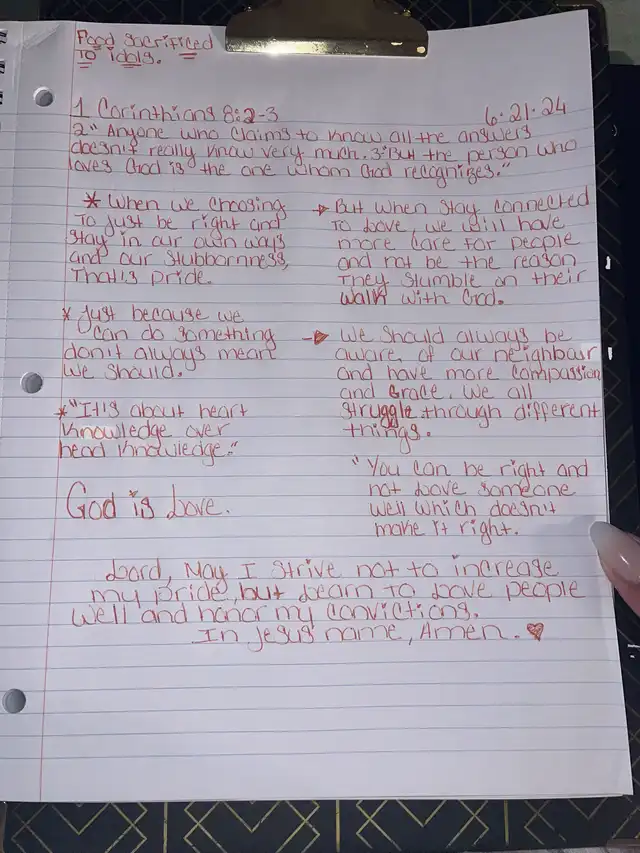 Food Sacrificed
To idols.
1 Corinthians 8:2-3
6.21.24
2"Anyone who claims to know all the answers
doesn't really know very much. 3"But the person who
loves God is the one whom God recognizes."
* When we choosing
To just be right and
stay in our own ways
and our stubbornness,
That's pride.
* Just because we
can do something
don't always mean
we should.
* "It is about heart
knowledge over
head knowledge."
God is Love.
But when stay connected
to Love, we will have
more care for people
and not be the reason
They stumble on their
walk with God.
We should always be
aware of our neighbour
and have more compassion
and Grace. We all
struggle through different
things.
"You can be right and
not Love someone
well which doesn't
make it right.
Lord, May I strive not to increase
my pride, but Learn to Love people
well and honor my convictions.
In Jesus name, Amen. ♥